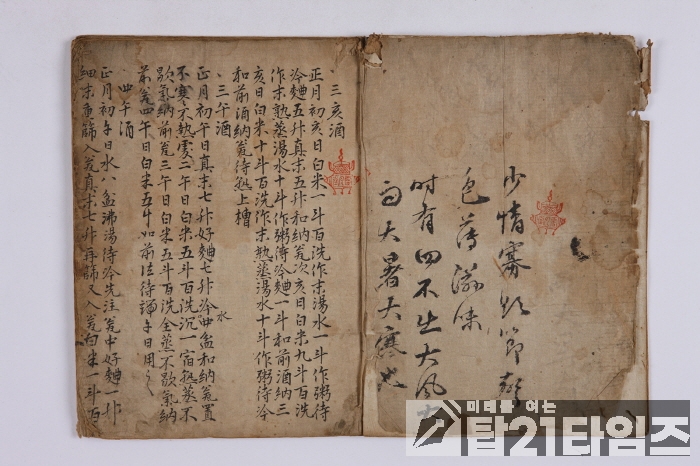 少情寡欲節聲
色薄滋味
時有四不出大風大
雨大暑大寒也
・三亥酒
正月初亥日白米一斗百洗作末湯水一斗作粥待
冷麯五升真末五升和納瓮次亥日白米九斗百洗
作末熟蒸湯水十斗作粥待冷麯一斗和前酒納三
亥日白米十斗百洗作末熟蒸湯水十斗作粥待冷
和前酒納瓮待熟上槽
・三午酒
正月初午日真末七升好麯七升冷水四盆和納瓮置
不寒不熱處二午日白米五斗百洗沉一宿熟蒸不
歇氣納前瓮三午日白米五斗百洗全蒸不歇氣納
前瓮四午日白米五斗如前法待端午日用之
・四午酒
正月初午日水八盆沸湯待冷先注瓮中好麯一升
細末重篩入瓮真末七升再篩又入瓮白米一斗百
미래를 여는
탑21타임즈